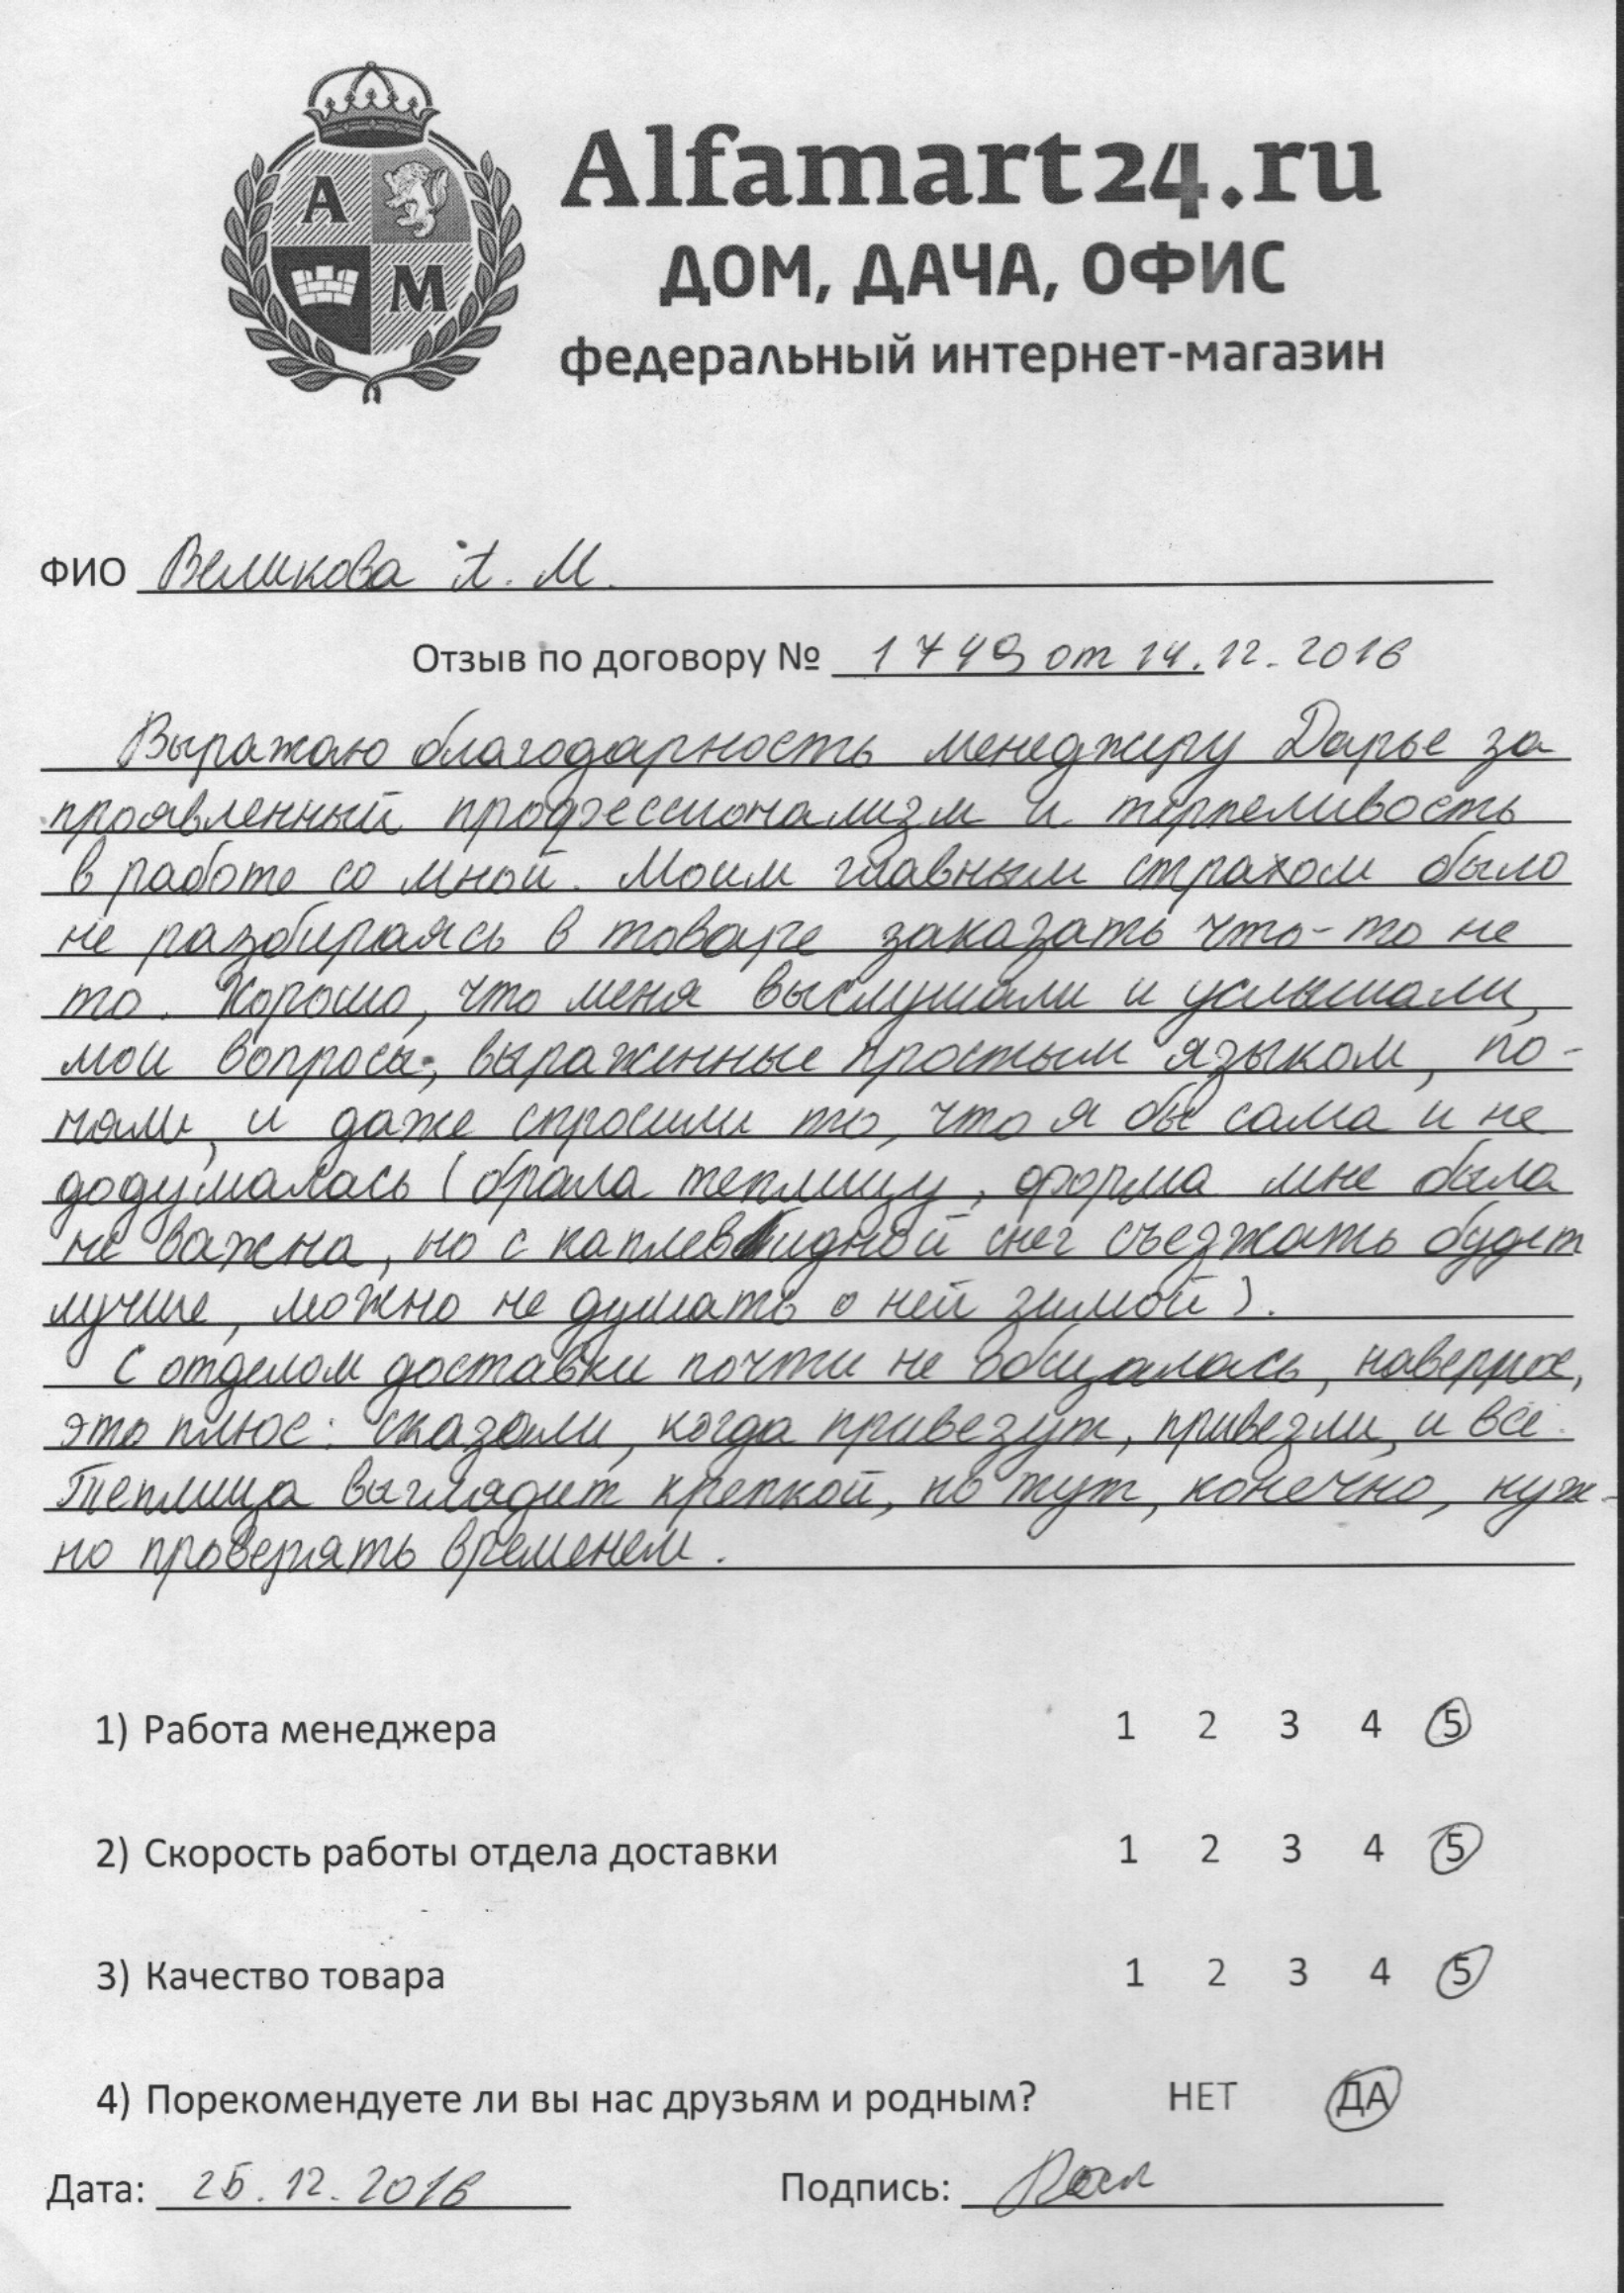 А
М
Alfamart24.ru
ДОМ, ДАЧА, ОФИС
федеральный интернет-магазин
ФИО Великова А. М.
Отзыв по договору № 1749 от 14.12.2016
Выражаю благодарность менеджеру Дарье за
проявленный профессионализм и терпеливость
в работе со мной. Моим главным страхом было
не разбираясь в товаре заказать что-то не
то. Хорошо, что меня выслушали и услышали,
мои вопросы, выраженные простым языком, по-
няли, и даже спросили то, что я бы сама и не
додумалась (брала теплицу, форма мне была
не важна, но с каплевидной снег съезжать будет
лучше, можно не думать о ней зимой).
С отделом доставки почти не общалась, наверное,
это плюс: сказали, когда привезут, привезли, и все.
Теплица выглядит крепкой, но тут, конечно, нуж-
но проверять временем.
1) Работа менеджера 1 2 3 4 5
2) Скорость работы отдела доставки 1 2 3 4 5
3) Качество товара 1 2 3 4 5
4) Порекомендуете ли вы нас друзьям и родным? НЕТ ДА
Дата: 25.12.2016 Подпись: